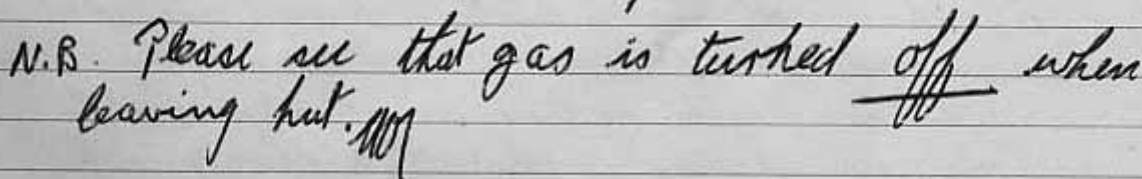 N.B. Please see that gas is turned off when
leaving hut.